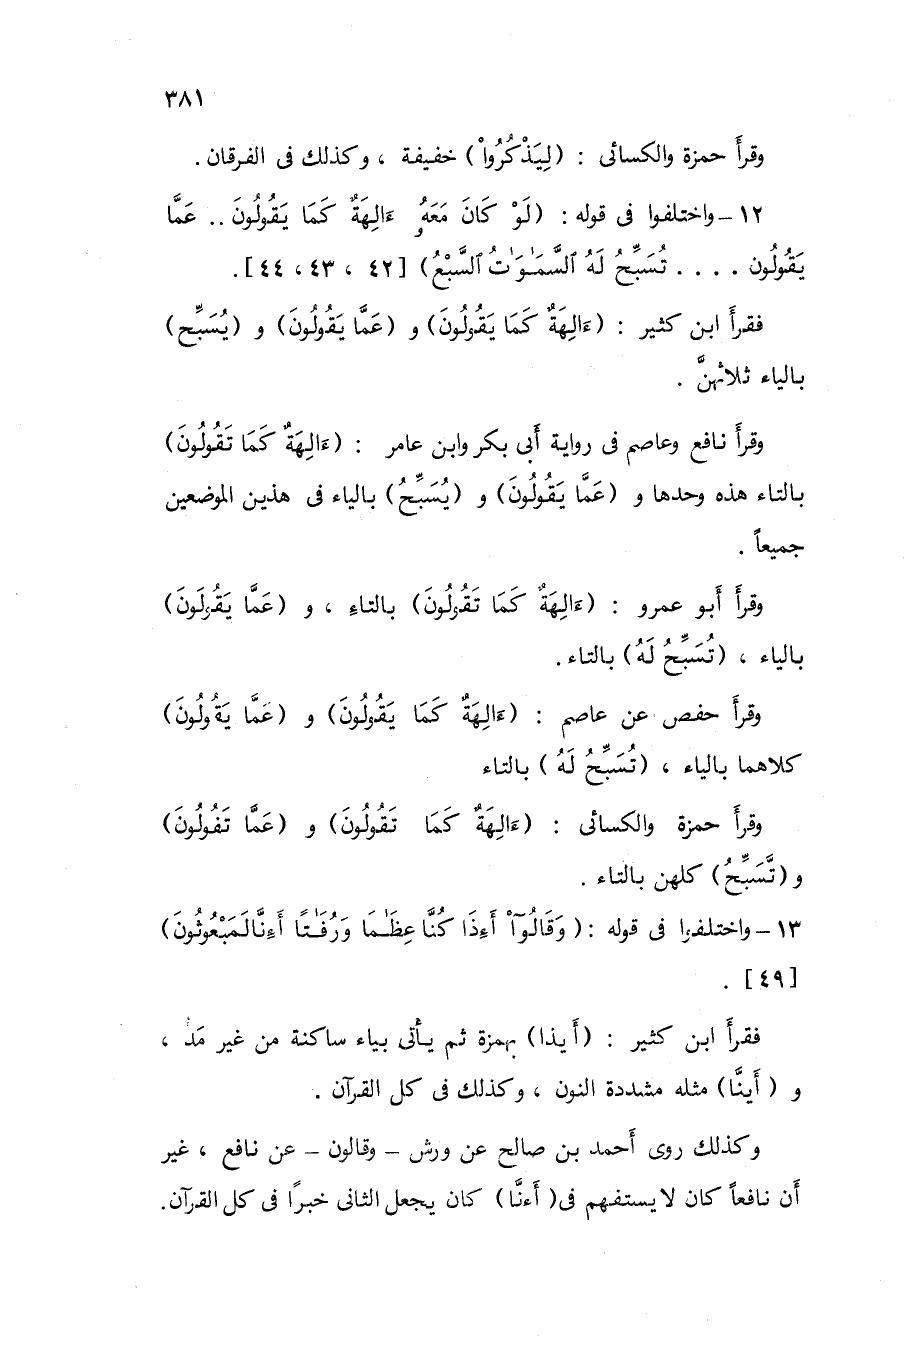 ٣٨١
وقرأ حمزة والكسائى : (لِيَذْكُرُواْ) خفيفة ، وكذلك فى الفرقان .
١٢ – واختلفوا فى قوله : (لَوْ كَانَ مَعَهُۥٓ ءَالِهَةٌ كَمَا يَقُولُونَ .. عَمَّا
يَقُولُون . . . . تُسَبِّحُ لَهُ ٱلسَّمَـٰوَٰتُ ٱلسَّبْعُ) [٤٢ ، ٤٣ ، ٤٤] .
فقرأ ابن كثير : (ءَالِهَةٌ كَمَا يَقُولُونَ) و (عَمَّا يَقُولُونَ) و (يُسَبِّح)
بالياء ثلاثهنَّ .
وقرأ نافع وعاصم فى رواية أبى بكر وابن عامر : (ءَالِهَةٌ كَمَا تَقُولُونَ)
بالتاء هذه وحدها و (عَمَّا يَقُولُونَ) و (يُسَبِّحُ) بالياء فى هذين الموضعين
جميعاً .
وقرأ أبو عمرو : (ءَالِهَةٌ كَمَا تَقُولُونَ) بالتاءِ ، و (عَمَّا يَقُولَونَ)
بالياء ، (تُسَبِّحُ لَهُ) بالتاء .
وقرأ حفص عن عاصم : (ءَالِهَةٌ كَمَا يَقُولُونَ) و (عَمَّا يَقُولُونَ)
كلاهما بالياء ، (تُسَبِّحُ لَهُ ) بالتاء
وقرأ حمزة والكسائى : (ءَالِهَةٌ كَمَا تَقُولُونَ) و (عَمَّا تَقُولُونَ)
و (تَّسَبِّحُ) كلهن بالتاء .
١٣ – واختلفوا فى قوله : ( وَقَالُوٓاْ أَءِذَا كُنَّا عِظَـٰمًا وَرُفَـٰتًا أَءِنَّا لَمَبْعُوثُونَ)
[٤٩] .
فقرأ ابن كثير : (أَيذا) بهمزة ثم يأتى بياء ساكنة من غير مَدّ ،
و ( أَينَّا) مثله مشددة النون ، وكذلك فى كل القرآن .
وكذلك روى أحمد بن صالح عن ورش – وقالون – عن نافع ، غير
أن نافعاً كان لا يستفهم فى( أَءنَّا ) كان يجعل الثانى خبرًا فى كل القرآن.